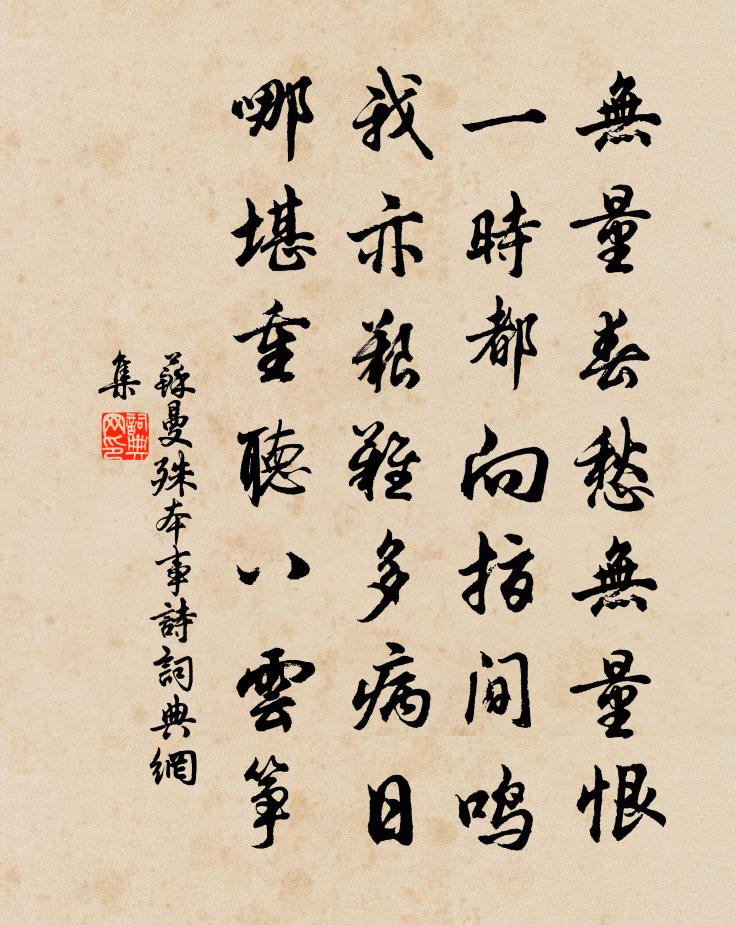 無量春愁無量恨
一時都向指間鳴
我亦艱難多病日
哪堪重聽八雲箏
蘇曼殊本事詩詞典網
集
詞典
网印